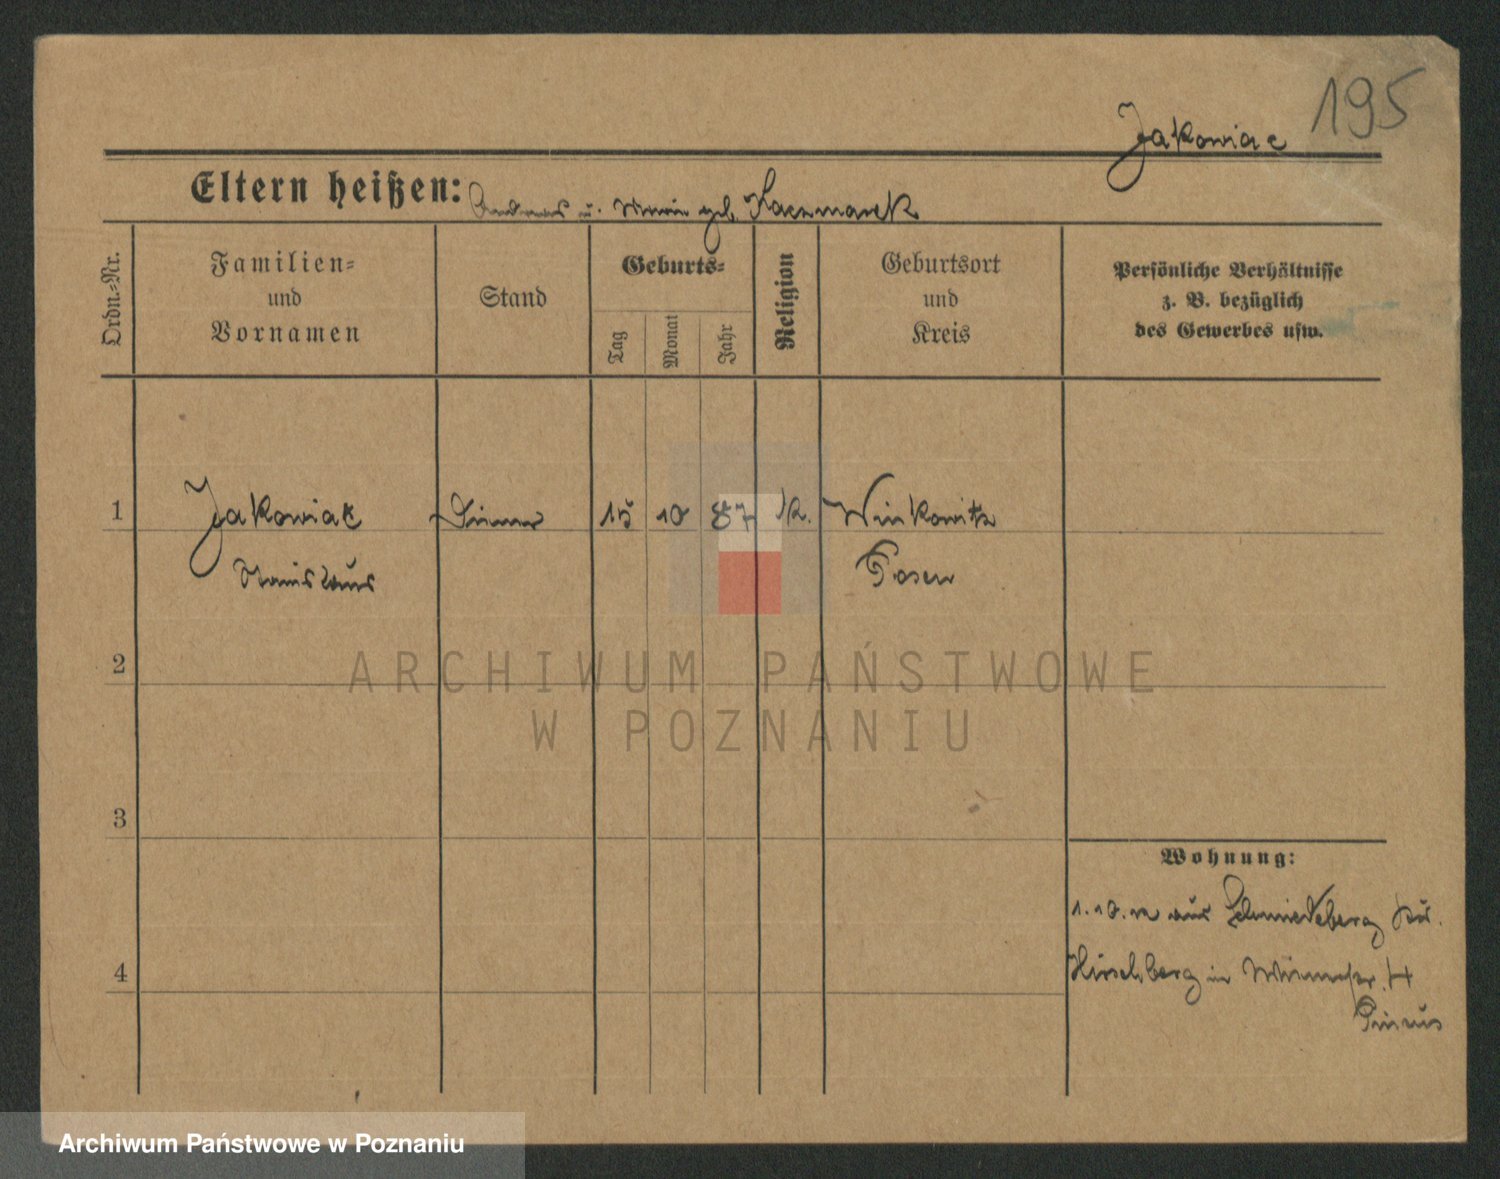 195
Jakowiac
Eltern heißen: Andreas u. Maria geb. Kaczmarek
Ordn.-Nr.
Familien-
und
Vornamen
Stand
Geburts-
Tag
Monat
Jahr
Religion
Geburtsort
und
Kreis
Persönliche Verhältnisse
z. B. bezüglich
des Gewerbes usw.
1 Jakowiak Diener 15 10 87 k. Winkowitz
Stanislaus Posen
2
3
4
Wohnung:
1.10. aus Schmiedeberg
Hirschberg in
Pincus
ARCHIWUM PAŃSTWOWE
W POZNANIU
Archiwum Państwowe w Poznaniu